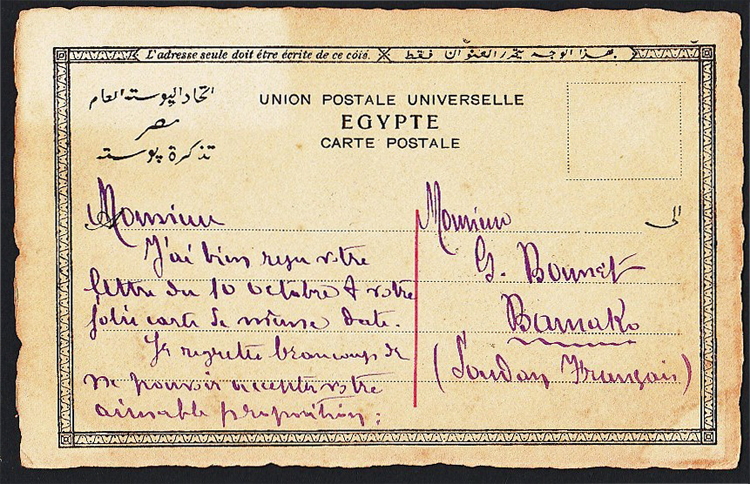 L'adresse seule doit être écrite de ce côté. بهذا الوجه يحرر العنوان فقط
اتحاد البوسته العام
مصر
تذكرة بوسته
UNION POSTALE UNIVERSELLE
EGYPTE
CARTE POSTALE
Monsieur
J'ai bien reçu votre
lettre du 10 octobre & votre
jolie carte de même date.
Je regrette beaucoup de
ne pouvoir accepter votre
aimable proposition;
الى
Monsieur
G. Bonnet
Bamako
(Soudan Français)